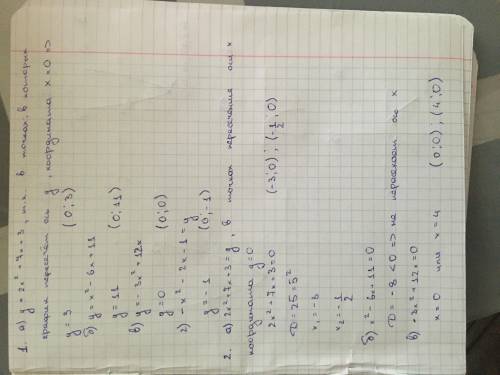 1. а) y = 2x² + 7x + 3, т.к. в точках, в которых
график пересечёт ось y, координата x = 0 =>
y = 3 (0; 3)
б) y = x² - 6x + 11
y = 11 (0; 11)
в) y = -3x² + 12x
y = 0 (0; 0)
г) -x² - 2x - 1 = y
y = -1 (0; -1)
2. а) 2x² + 7x + 3 = y, в точках пересечения оси x
координата y = 0
2x² + 7x + 3 = 0 (-3; 0); (-1/2; 0)
D = 25 = 5²
x₁ = -3
x₂ = -1/2
б) x² - 6x + 11 = 0
D = -8 < 0 => не пересекает ось x
в) -3x² + 12x = 0
x = 0 или x = 4 (0; 0); (4; 0)